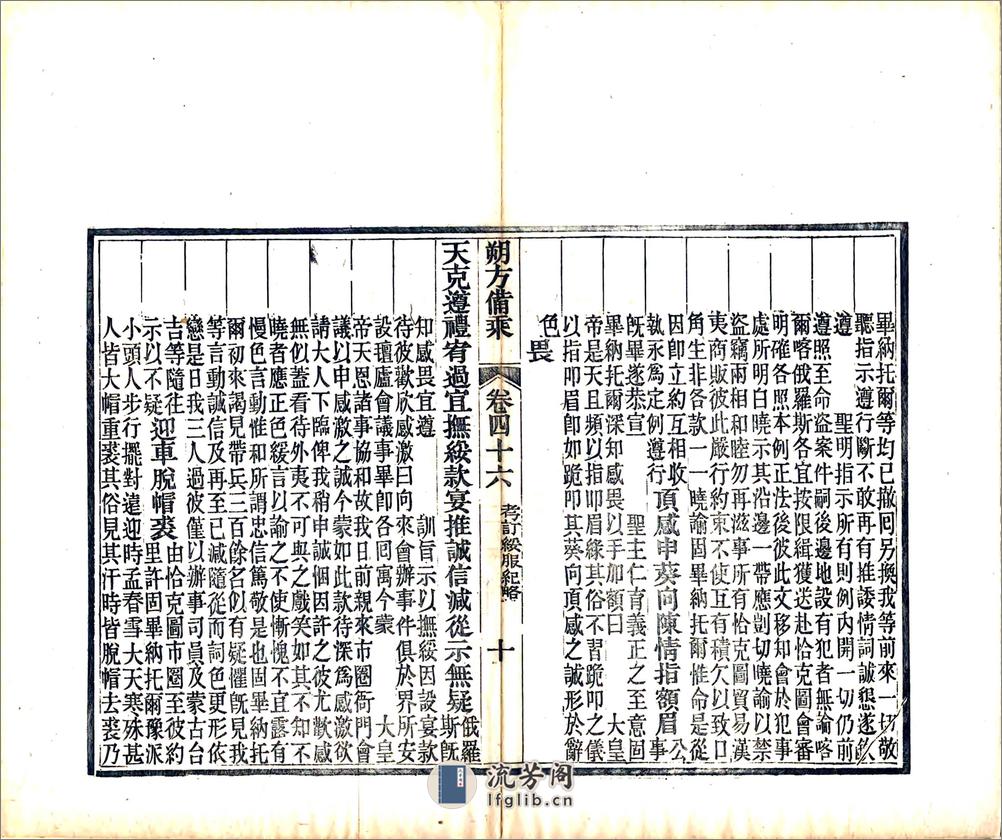 畢納托爾等均已撤回另換我等前來一切敬
聽指示遵行斷不敢再有推諉情詞誠懇遂欽
遵　　聖明指示所有則例內開一切仍前
遵照至命盜案件嗣後邊地設有犯者無論喀
爾喀俄羅斯各宜按限緝獲送赴恰克圖會審
明確各照本例正法後彼此文移知會於犯事
處所明白曉示其沿邊一帶應剴切曉諭以禁
盜竊兩相和睦勿再滋事所有恰克圖貿易漢
夷商販彼此嚴行約束不使互有積欠以致口
角生非各款一一曉諭固畢納托爾惟命是從
因卽立約互相收
執永爲定例遵行頂感申葵向陳情指額眉公事
旣畢遂恭宣　　聖主仁育義正之至意固
畢納托爾深知感畏以手加額曰　　大皇
帝是天且頻以指叩眉緣其俗不習跪叩之儀
以指叩眉卽如跪叩其葵向頂感之誠形於辭
色畏
朔方備乘　卷四十六　考訂綏服紀略　十
天克遵禮宥過宜撫綏款宴推誠信減從示無疑俄羅斯旣
知感畏宜遵　　訓旨示以撫綏因設宴款
待彼歡欣感激曰向來會辦事件俱於界所安
設氊廬會議事畢卽各回寓今蒙　　大皇
帝天恩諸事協和故我日前親來市圈衙門會
議以申感激之誠今蒙如此款待深爲感激欲
請大人下臨俾我稍申誠悃因許之彼尤歡感
無似蓋看待外夷不可與之戲笑如其不知不
曉者應正色緩言以諭之不使慚愧不宜露有
慢色言動惟和所謂忠信篤敬是也固畢納托
爾初來謁見帶兵三百餘名似有疑懼旣見我
等言動誠信及再至已減隨從而詞色更形依
戀是日我三人過彼僅以辦事司員及蒙古台
吉等隨往
示以不疑迎車脫帽裘由恰克圖市圈至彼約里許固畢納托爾豫派
小頭人步行擺對遠迎時孟春雪大天寒殊甚
人皆大帽重裘其俗見其汗時皆脫帽去裘乃
流芳阁
lfglib.cn